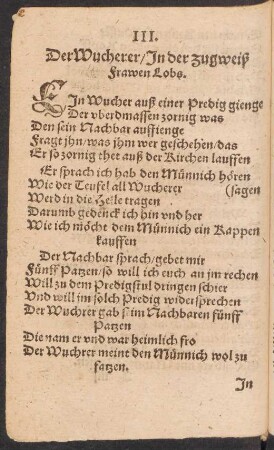 III.
Der Wucherer/In der Zugweiß
Frawen Lobs.
EIn Wucher auß einer Predig gienge
Der vberdmassen zornig was
Den sein Nachbar auffienge
Fragt jhn/was jhm wer geschehen/das
Er so zornig thet auß der Kirchen lauffen
Er sprach ich hab den Münnich hören
Wie der Teufel all Wucherer (sagen
Werd in die Helle tragen
Darumb gedenck ich hin vnd her
Wie ich möcht dem Münnich ein Kappen
kauffen
Der Nachbar sprach/gebet mir
Fünff Patzen/so will ich euch an jm rechen
Will zu dem Predigstul dringen schier
Vnd will jm solch Predig widersprechen
Der Wuchrer gab seim Nachbaren fünff
Patzen
Die nam er vnd war heimlich fro
Der Wuchrer meint den Münnich wol zu
fatzen.
In